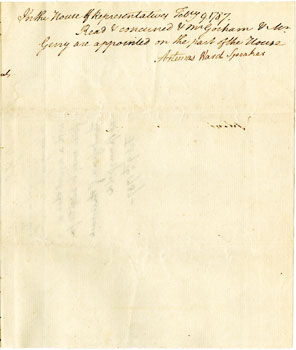 In the House of Representatives Feby 9. 1787.
Read & concurred & Mr Gorham & Mr
Gerry are appointed on the part of the House
Artemas Ward Speaker